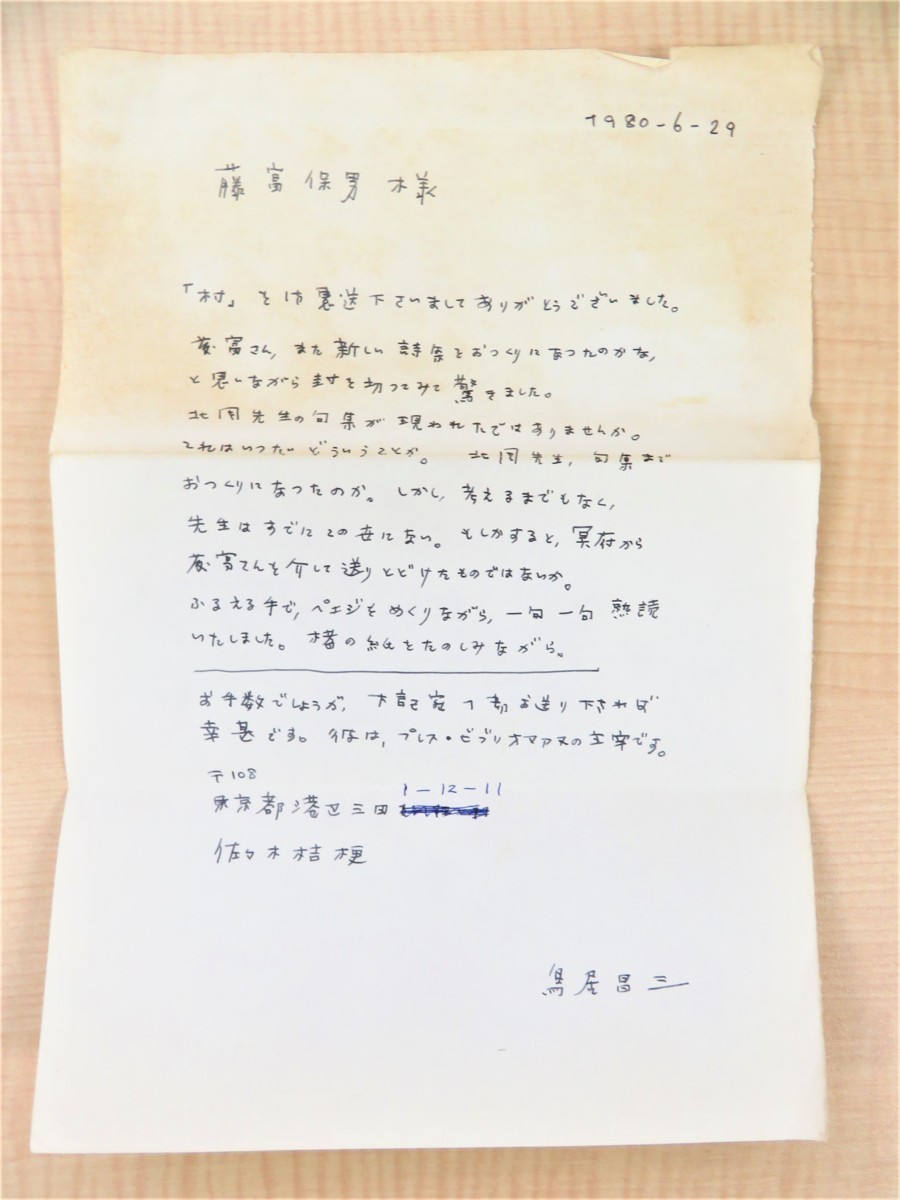 1980-6-29
藤富保男様
「村」を御恵送下さいましてありがとうございました。
藤富さん，また新しい詩集をおつくりになつたのかな，
と思いながら封を切つてみて驚きました。
北園先生の句集が現われたではありませんか。
これはいつたいどういうことか。 北園先生，句集まで
おつくりになつたのか。しかし，考えるまでもなく，
先生はすでにこの世にない。もしかすると，冥府から
藤富さんを介して送りとどけたものではないか。
ふるえる手で，ペエジをめくりながら，一句一句 熟読
いたしました。楮の紙をたのしみながら。
お手数でしょうが，下記宛1部お送り下されば
幸甚です。彼は，プレス・ビブリオマアヌの主宰です。
〒108
東京都港区三田 1-12-11
佐々木桔梗
鳥居昌三